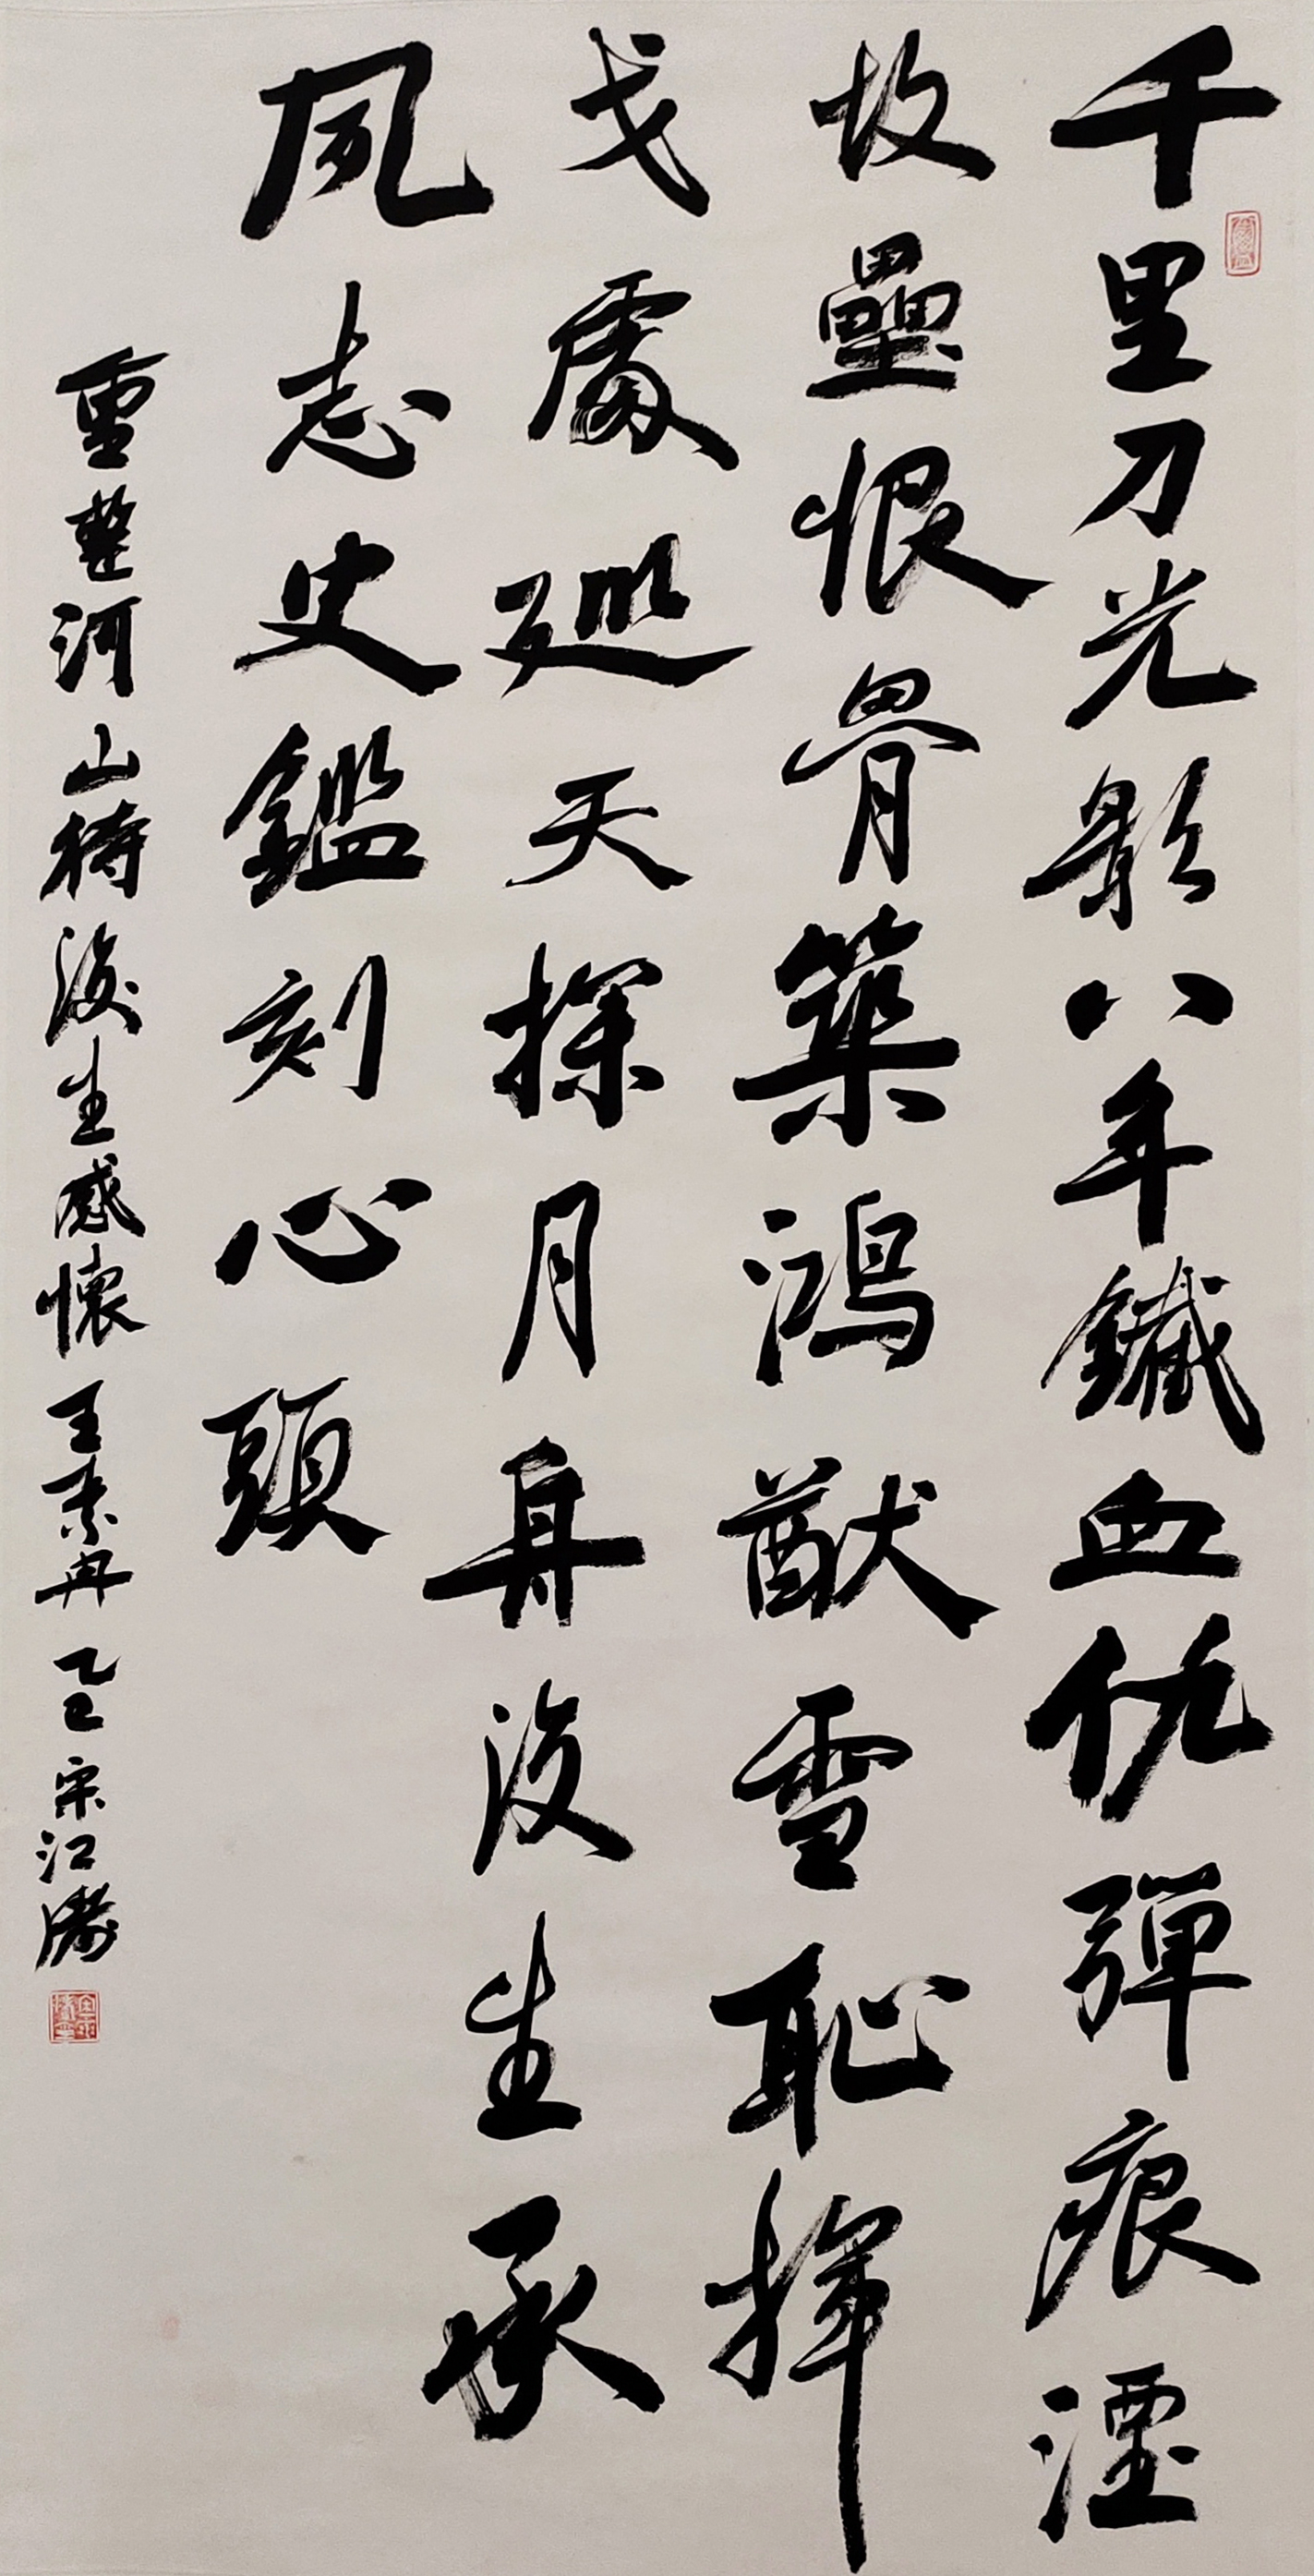 千里刀光影八年鐵血仇彈痕湮
故壘恨骨築鴻猷雪恥揮
戈處巡天探月舟後生承
夙志史鑑刻心頭
重整河山待後生感懷 王素冉 乙巳 宋江濤